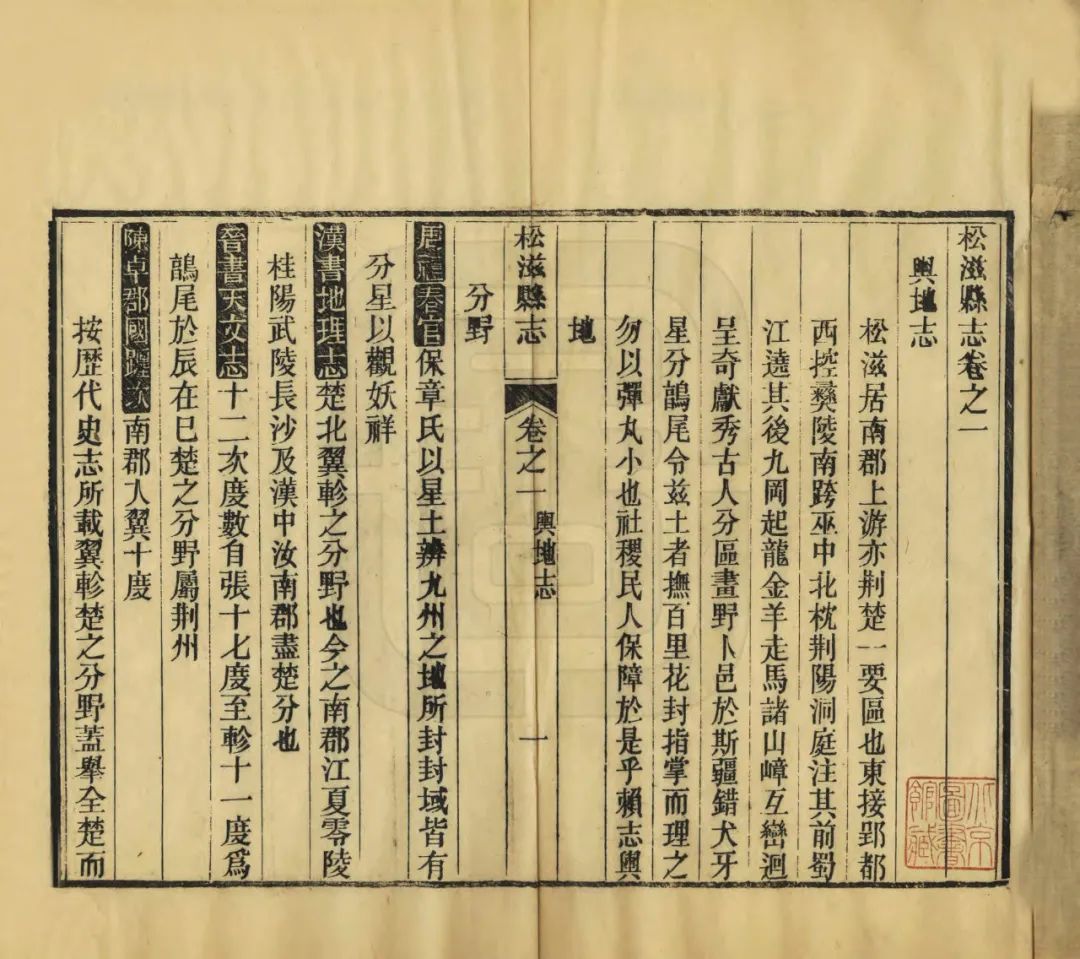 松滋縣志卷之一
輿地志
松滋居南郡上游亦荆楚一要區也東接郢都
西控彝陵南跨巫中北枕荆陽洞庭注其前蜀
江遶其後九岡起龍金羊走馬諸山嶂互巒迴
呈奇獻秀古人分區畫野卜邑於斯疆錯犬牙
星分鶉尾令兹土者撫百里花封指掌而理之
勿以彈丸小也社稷民人保障於是乎賴志輿
地
松滋縣志
卷之一
輿地志
一
分野
周禮春官保章氏以星土辨九州之地所封封域皆有
分星以觀妖祥
漢書地理志楚北翼軫之分野也今之南郡江夏零陵
桂陽武陵長沙及漢中汝南郡盡楚分也
晉書天文志十二次度數自張十七度至軫十一度爲
鶉尾於辰在巳楚之分野屬荆州
陳卓郡國躔次南郡入翼十度
按歷代史志所載翼軫楚之分野蓋舉全楚而
北京
圖書
館藏